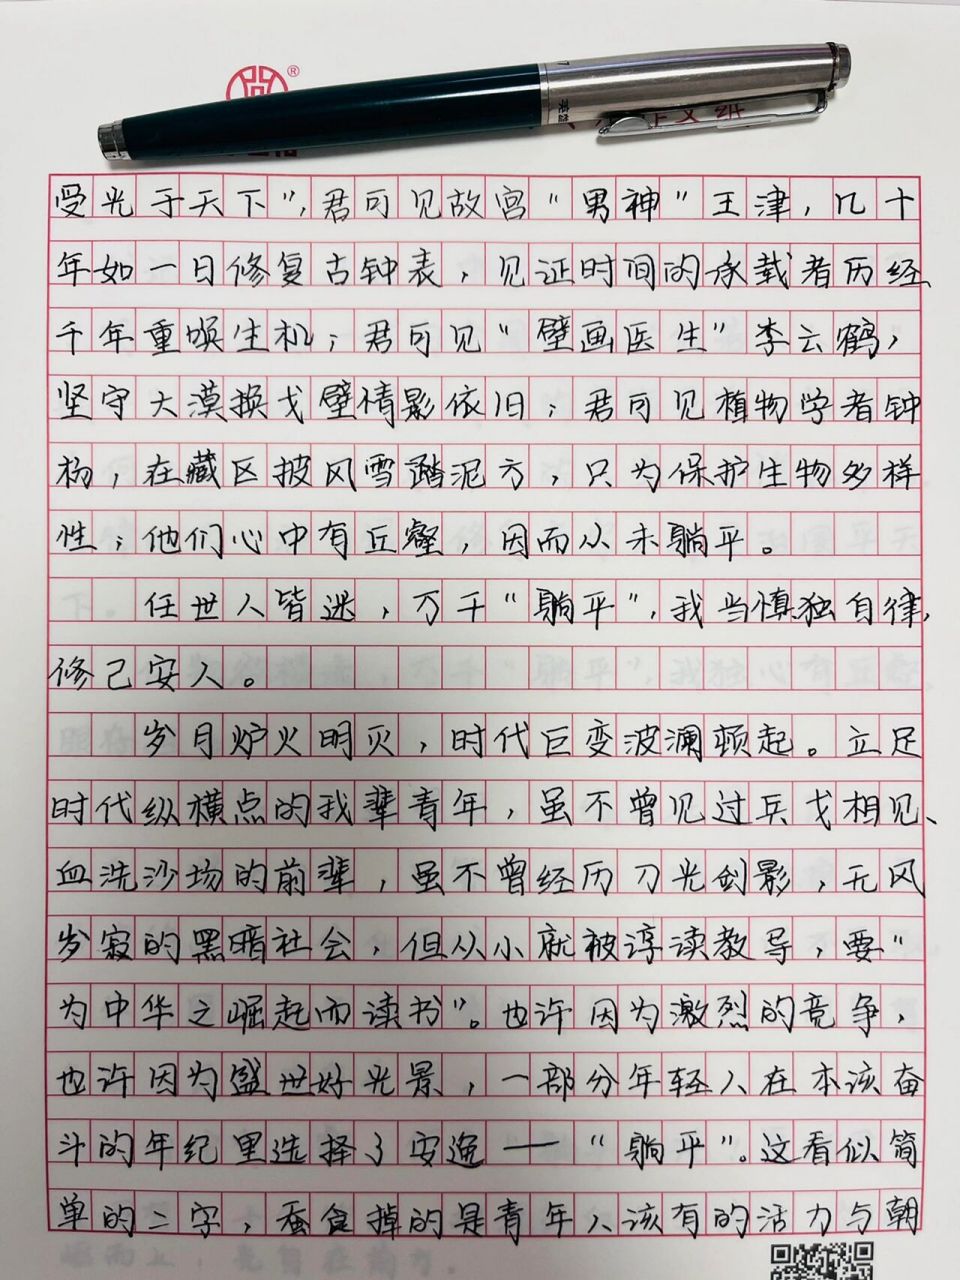 受光于天下”，君可见故宫“男神”王津，几十
年如一日修复古钟表，见证时间的承载者历经
千年重焕生机；君可见“壁画医生”李云鹤，
坚守大漠换戈壁倩影依旧；君可见植物学者钟
杨，在藏区披风雪踏泥方，只为保护生物多样
性；他们心中有丘壑，因而从未躺平。
任世人皆迷，万千“躺平”，我当慎独自律，
修己安人。
岁月炉火明灭，时代巨变波澜顿起。立足
时代纵横点的我辈青年，虽不曾见过兵戈相见、
血洗沙场的前辈，虽不曾经历刀光剑影，无风
岁寂的黑暗社会，但从小就被谆读教导，要“
为中华之崛起而读书”。也许因为激烈的竞争，
也许因为盛世好光景，一部分年轻人在本该奋
斗的年纪里选择了安逸——“躺平”。这看似简
单的二字，蚕食掉的是青年人该有的活力与朝